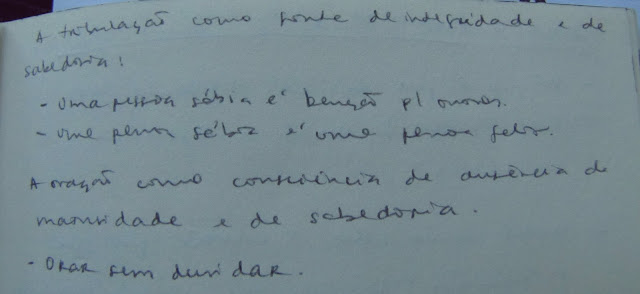 A tribulação como fonte de integridade e de
sabedoria:
- Uma pessoa sábia é benção p/ outros.
- uma pessoa sábia é uma pessoa feliz.
A oração como consciência de ausência de
maturidade e de sabedoria.
- Orar sem duvidar.